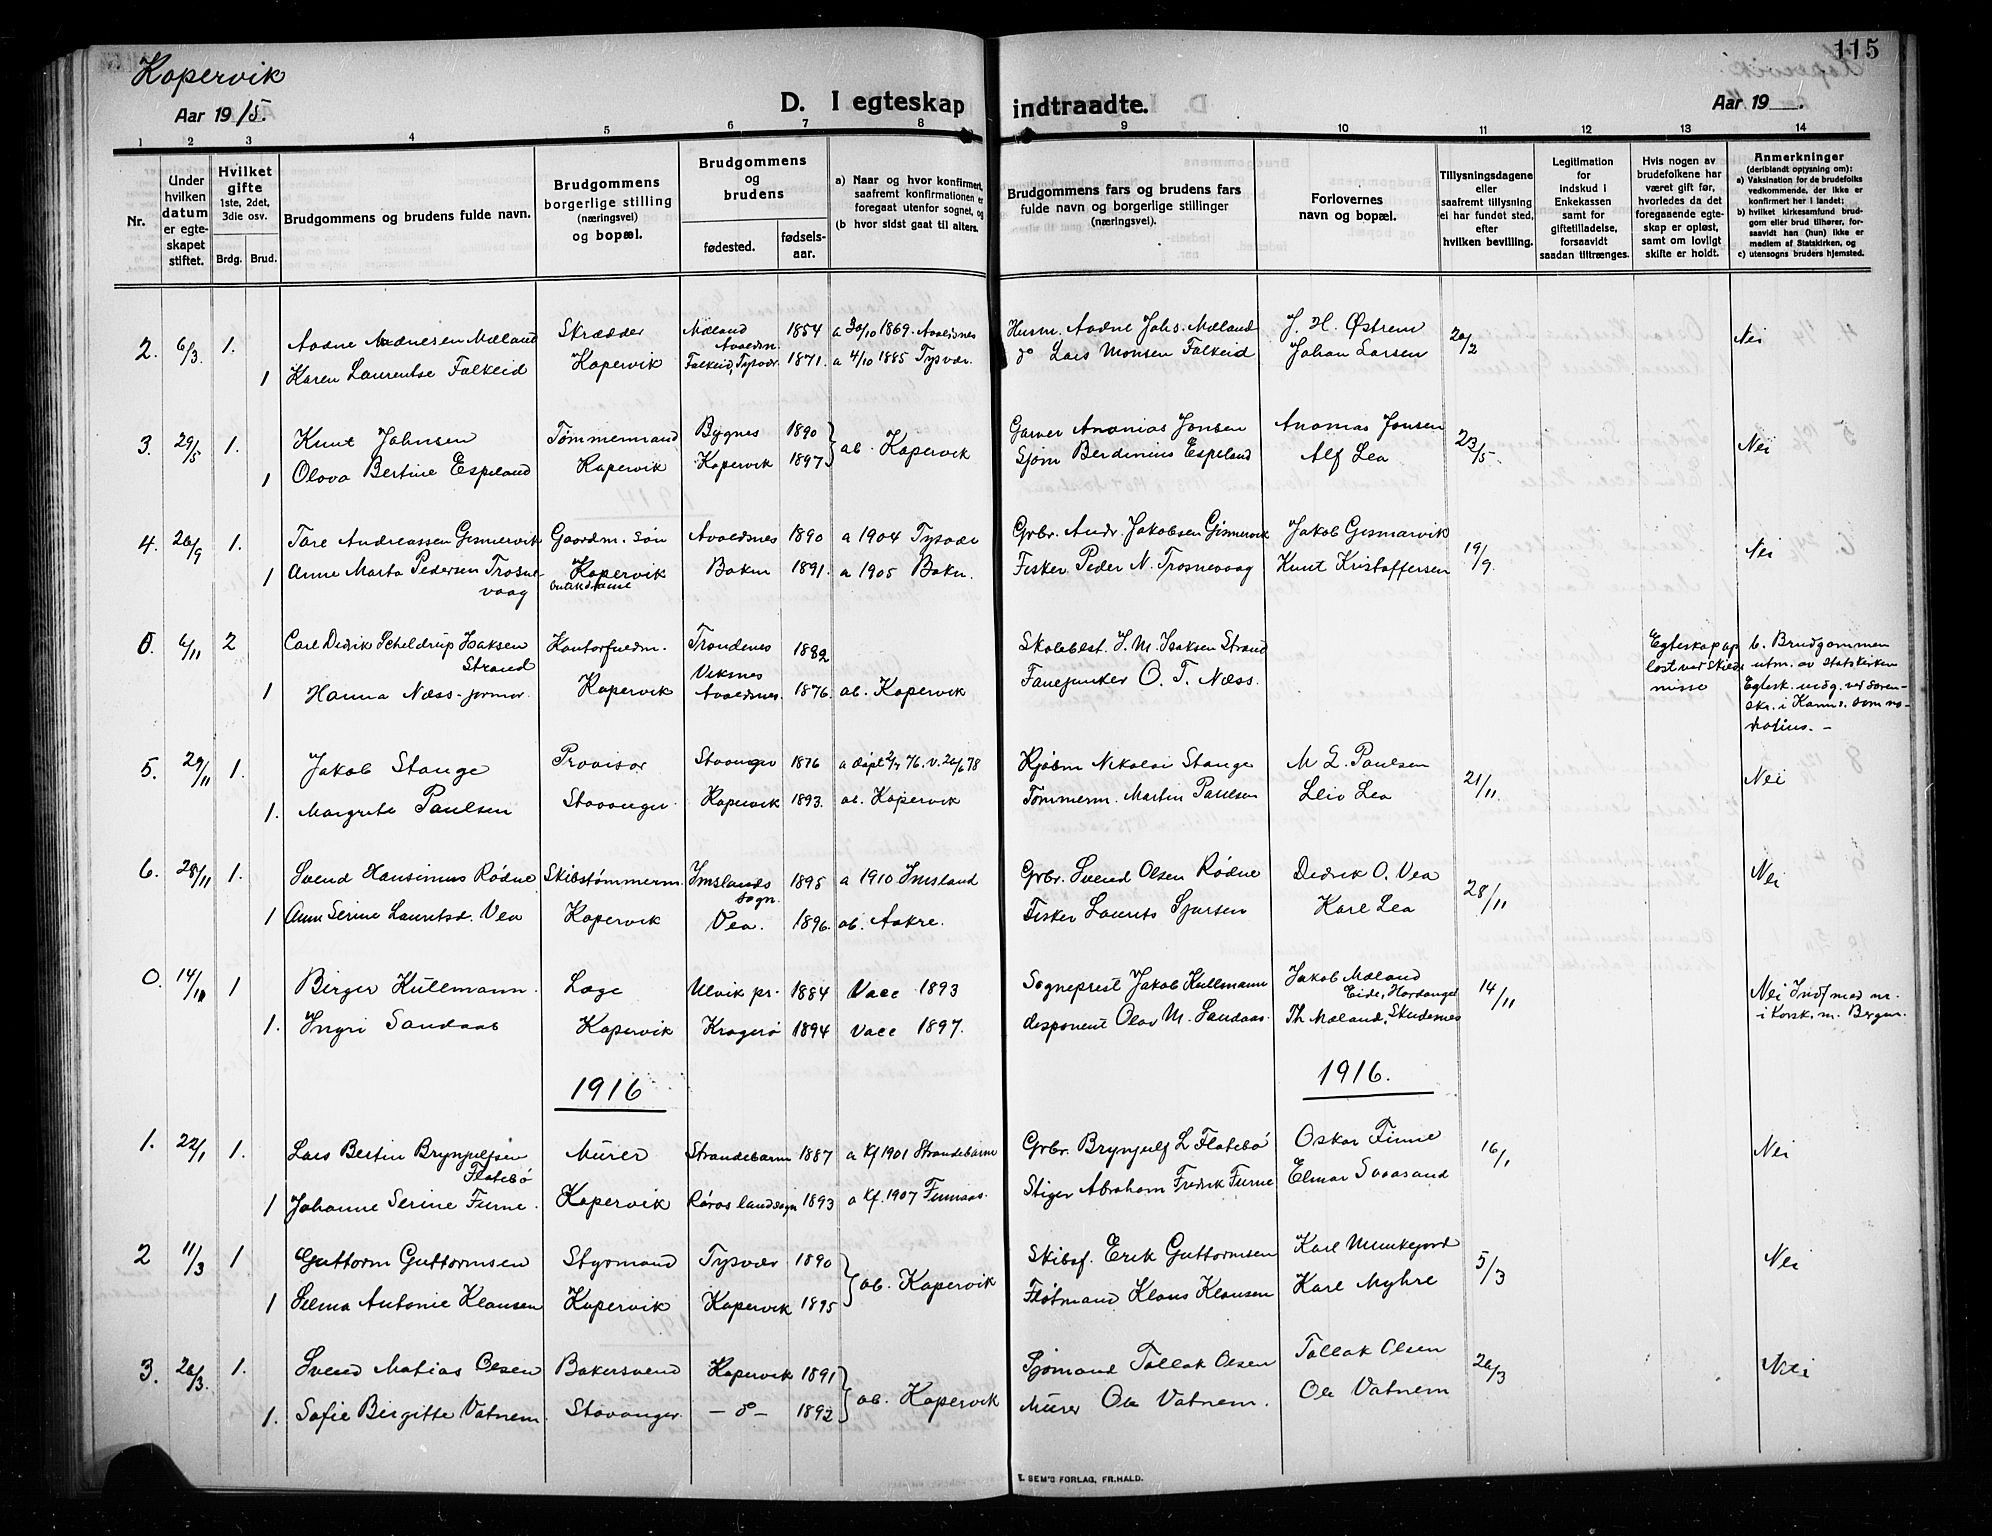 Kopervik
115
Aar 1915.
D. I egteskap indtraadte.
Aar 19
1 2 3 4 5 6 7 8 9 10 11 12 13 14
Nr.
Under hvilken datum er egteskapet stiftet.
Hvilket gifte 1ste, 2det, 3die osv.
Brdg. Brud.
Brudgommens og brudens fulde navn.
Brudgommens borgerlige stilling (næringsvei) og bopæl.
Brudgommens og brudens
fødested. fødselsaar.
a) Naar og hvor konfirmert, saafremt konfirmationen er foregaat utenfor sognet, og
(b hvor sidst gaat til alters.
Brudgommens fars og brudens fars fulde navn og borgerlige stillinger (næringsvei).
Forlovernes navn og bopæl.
Tillysningsdagene eller saafremt tillysning ei har fundet sted, efter hvilken bevilling.
Legitimation for indskud i Enkekassen samt for giftetilladelse, forsaavidt saadan tiltrænges.
Hvis nogen av brudefolkene har været gift før, hvorledes da det foregaaende egteskap er opløst, samt om lovlig skifte er holdt.
Anmerkninger (deriblandt opjysning om): a) Vaksination for de brudefolks vedkommende, der ikke er konfirmert her i landet; b) hvilket kirkesamfund brudgom eller brud tilhører, forsaavidt han (hun) ikke er medlem af Statskirken, og c) utensogns bruders hjemsted.
2. 6/3 1. Aadne Aadnesen Mæland Skrædder Mæland Avaldsn. 1854 a 30/10 1869. Avaldsnes Husm. Aadne Johs. Mæland J. H. Østrem 20/2 Nei
1 Karen Laurentse Falkeid Kopervik Falkeid, Tysvær 1871. a 4/10 1885 Tysvær. do Lars Monsen Falkeid Johan Larsen
3. 29/5 1. Knut Johnsen Tømmermand Bygnes 1890 ab. Kopervik Garver Ananias Jonsen Ananias Jonsen 23/5. Nei
1 Olova Bertine Espeland Kopervik Kopervik 1897 Sjøm Berdinius Espeland Alf Lea
4. 26/9 1. Tore Andreassen Gismervik Gaardm. søn Avaldsnes 1890 a 1904 Tysvær Grbr. Andr. Jakobsen Gismervik Jakob Gismarvik 19/9 Nei
1 Anne Marta Pedersen Trosnevaag Kopervik Bokn 1891. a 1905 Bokn. Fisker Peder N. Trosnevaag Knut Kristoffersen
0. 6/11 2 Carl Didrik Scheldrup Isaksen Strand Kontorfuldm. Trondenes 1882 Skolebest. J. M. Isaksen Strand Egteskap op løst ved Skilsmisse b. Brudgommen utm. av Statskirken Egtesk. indg. ved Sorenskr. i Karms. som notarius. –
1 Hanna Næss – jormor. Kopervik Viknes Avaldsnes 1876. ab. Kopervik Fanejunker O. T. Næss.
5. 29/11 1. Jakob Stange Provisor Stavanger 1876 Kjøbm Nikolai Stange M L. Paulsen 21/11. Nei
1. Margrete Paulsen Stavanger. Kopervik 1893. ab. Kopervik Tømmerm. Martin Paulsen Leiv Lea
6. 28/11 1. Svend Hansinius Rødne Skibstømmerm. Imslands sogn. 1895 a 1910 Imsland Grbr. Svend Olsen Rødne Didrik O. Vea 28/11 Nei
1 Ann Serine Lauritsd. Vea Kopervik Vea. 1896. ab. Aakre. Fisker Laurits Sjursen Karl Lea
0. 14/11 1 Birger Kullmann. Læge Ulvik pr. 1884 Vacc 1893 Sogneprest Jakob Kullmann Jakob Mæland Eide, Hardanger 14/11 Nei
1. Ingri Sandaas Kopervik Kragerø 1894 Vacc 1897. disponent Olav M. Sandaas. Th Mæland, Skudenes
1916 1916.
1. 22/1 1. Lars Bertin Brynjulfsen Flatebø Murer Strandebarm 1887 a Kf 1901 Strandebarm Grbr. Brynjulf L Flatebø Oskar Finne 16/1 Nei
1 Johanne Serine Furne. Kopervik Røros landsogn 1893 a Kf. 1907 Finnaas. Stiger Abraham Fredrik Furne Elmar Svaasand
2 11/3 1 Guttorm Guttormsen Styrmand Tysvær 1890 ab. Kopervik Skibsf. Erik Guttormsen Karl Munkejord 5/3 Nei
1 Selma Antonie Klausen Kopervik Kopervik 1895 Fløtmand Klaus Klausen Karl Myhre
3. 26/3. 1. Svend Matias Olsen Bakersvend Kopervik 1891 ab. Kopervik Sjømand Tollak Olsen Tollak Olsen 26/3 Nei
1. Sofie Birgitte Vatnem. Stavanger. – do – 1892 Murer Ole Vatnem. Ole Vatnem
E. SEM'S FORLAG, FR.HALD.